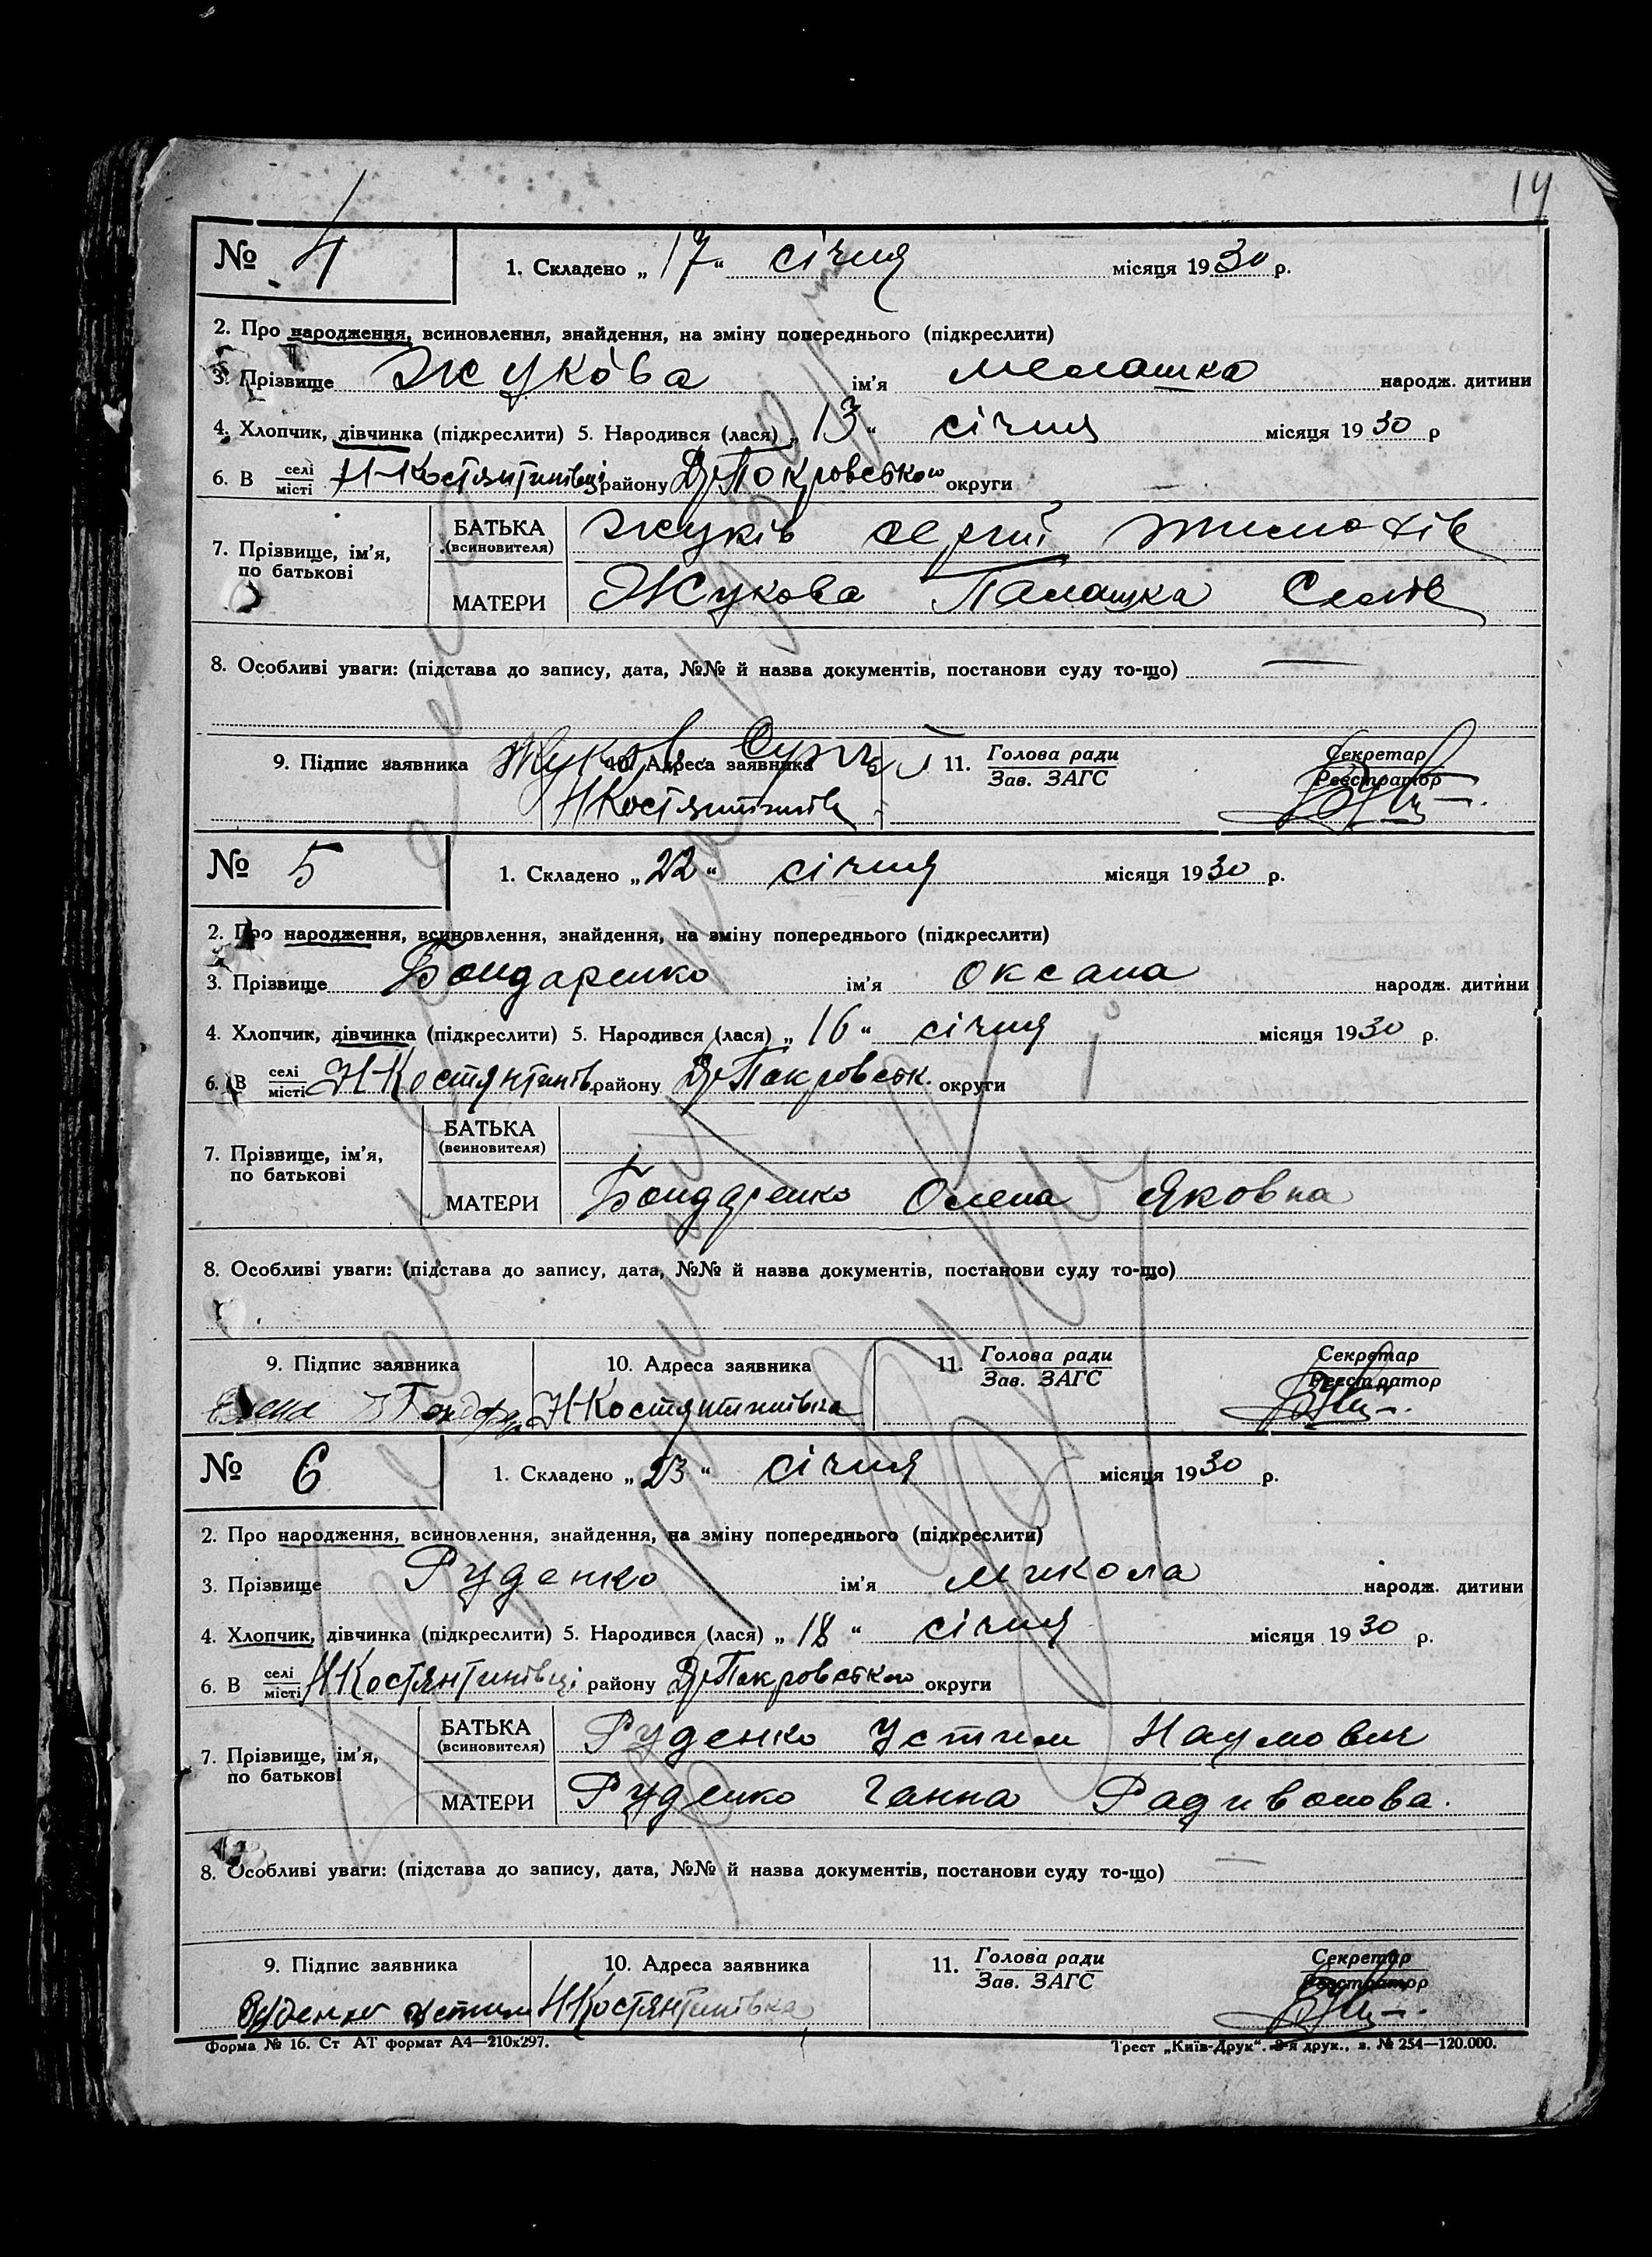 14
№ 4 1. Складено „ 17 “ січня місяця 1930 р.
2. Про народження, всиновлення, знайдення, на зміну попереднього (підкреслити)
3. Прізвище Жукова ім’я Мелашка народж. дитини
4. Хлопчик, дівчинка (підкреслити) 5. Народився (лася) „ 13 “ січня місяця 1930 р
6. В селі
місті Н-Костянтинівці району Д/Покровського округи
7. Прізвище, ім’я,
по батькові
БАТЬКА
(всиновителя) Жуків Сергій Тимофів
МАТЕРИ Жукова Палашка
8. Особливі уваги: (підстава до запису, дата, №№ й назва документів, постанови суду то-що) —
9. Підпис заявника Жуков 10. Адреса заявника 11. Голова ради
Зав. ЗАГС Секретар
Реєстратор
№ 5 1. Складено „ 22 “ січня місяця 1930 р.
2. Про народження, всиновлення, знайдення, на зміну попереднього (підкреслити)
3. Прізвище Бондаренко ім’я Оксана народж. дитини
4. Хлопчик, дівчинка (підкреслити) 5. Народився (лася) „ 16 “ січня місяця 1930 р.
6. В селі
місті Н-Костянтинів. району Д/Покровськ. округи
7. Прізвище, ім’я,
по батькові
БАТЬКА
(всиновителя)
МАТЕРИ Бондаренко Олена Яковна
8. Особливі уваги: (підстава до запису, дата, №№ й назва документів, постанови суду то-що)
9. Підпис заявника 10. Адреса заявника 11. Голова ради
Зав. ЗАГС Секретар
Реєстратор
Н-Костянтинівка
№ 6 1. Складено „ 23 “ січня місяця 1930 р.
2. Про народження, всиновлення, знайдення, на зміну попереднього (підкреслити)
3. Прізвище Руденко ім’я Микола народж. дитини
4. Хлопчик, дівчинка (підкреслити) 5. Народився (лася) „ 18 “ січня місяця 1930 р.
6. В селі
місті Н-Костянтинівці району Д/Покровського округи
7. Прізвище, ім’я,
по батькові
БАТЬКА
(всиновителя) Руденко Устим Наумович
МАТЕРИ Руденко Ганна Радивонова.
8. Особливі уваги: (підстава до запису, дата, №№ й назва документів, постанови суду то-що) —
9. Підпис заявника 10. Адреса заявника 11. Голова ради
Зав. ЗАГС Секретар
Реєстратор
Руденко Устим Н-Костянтинівка
Форма № 16. Ст АТ формат А4—210х297. Трест „Київ-Друк“. 3-я друк., з. № 254—120.000.